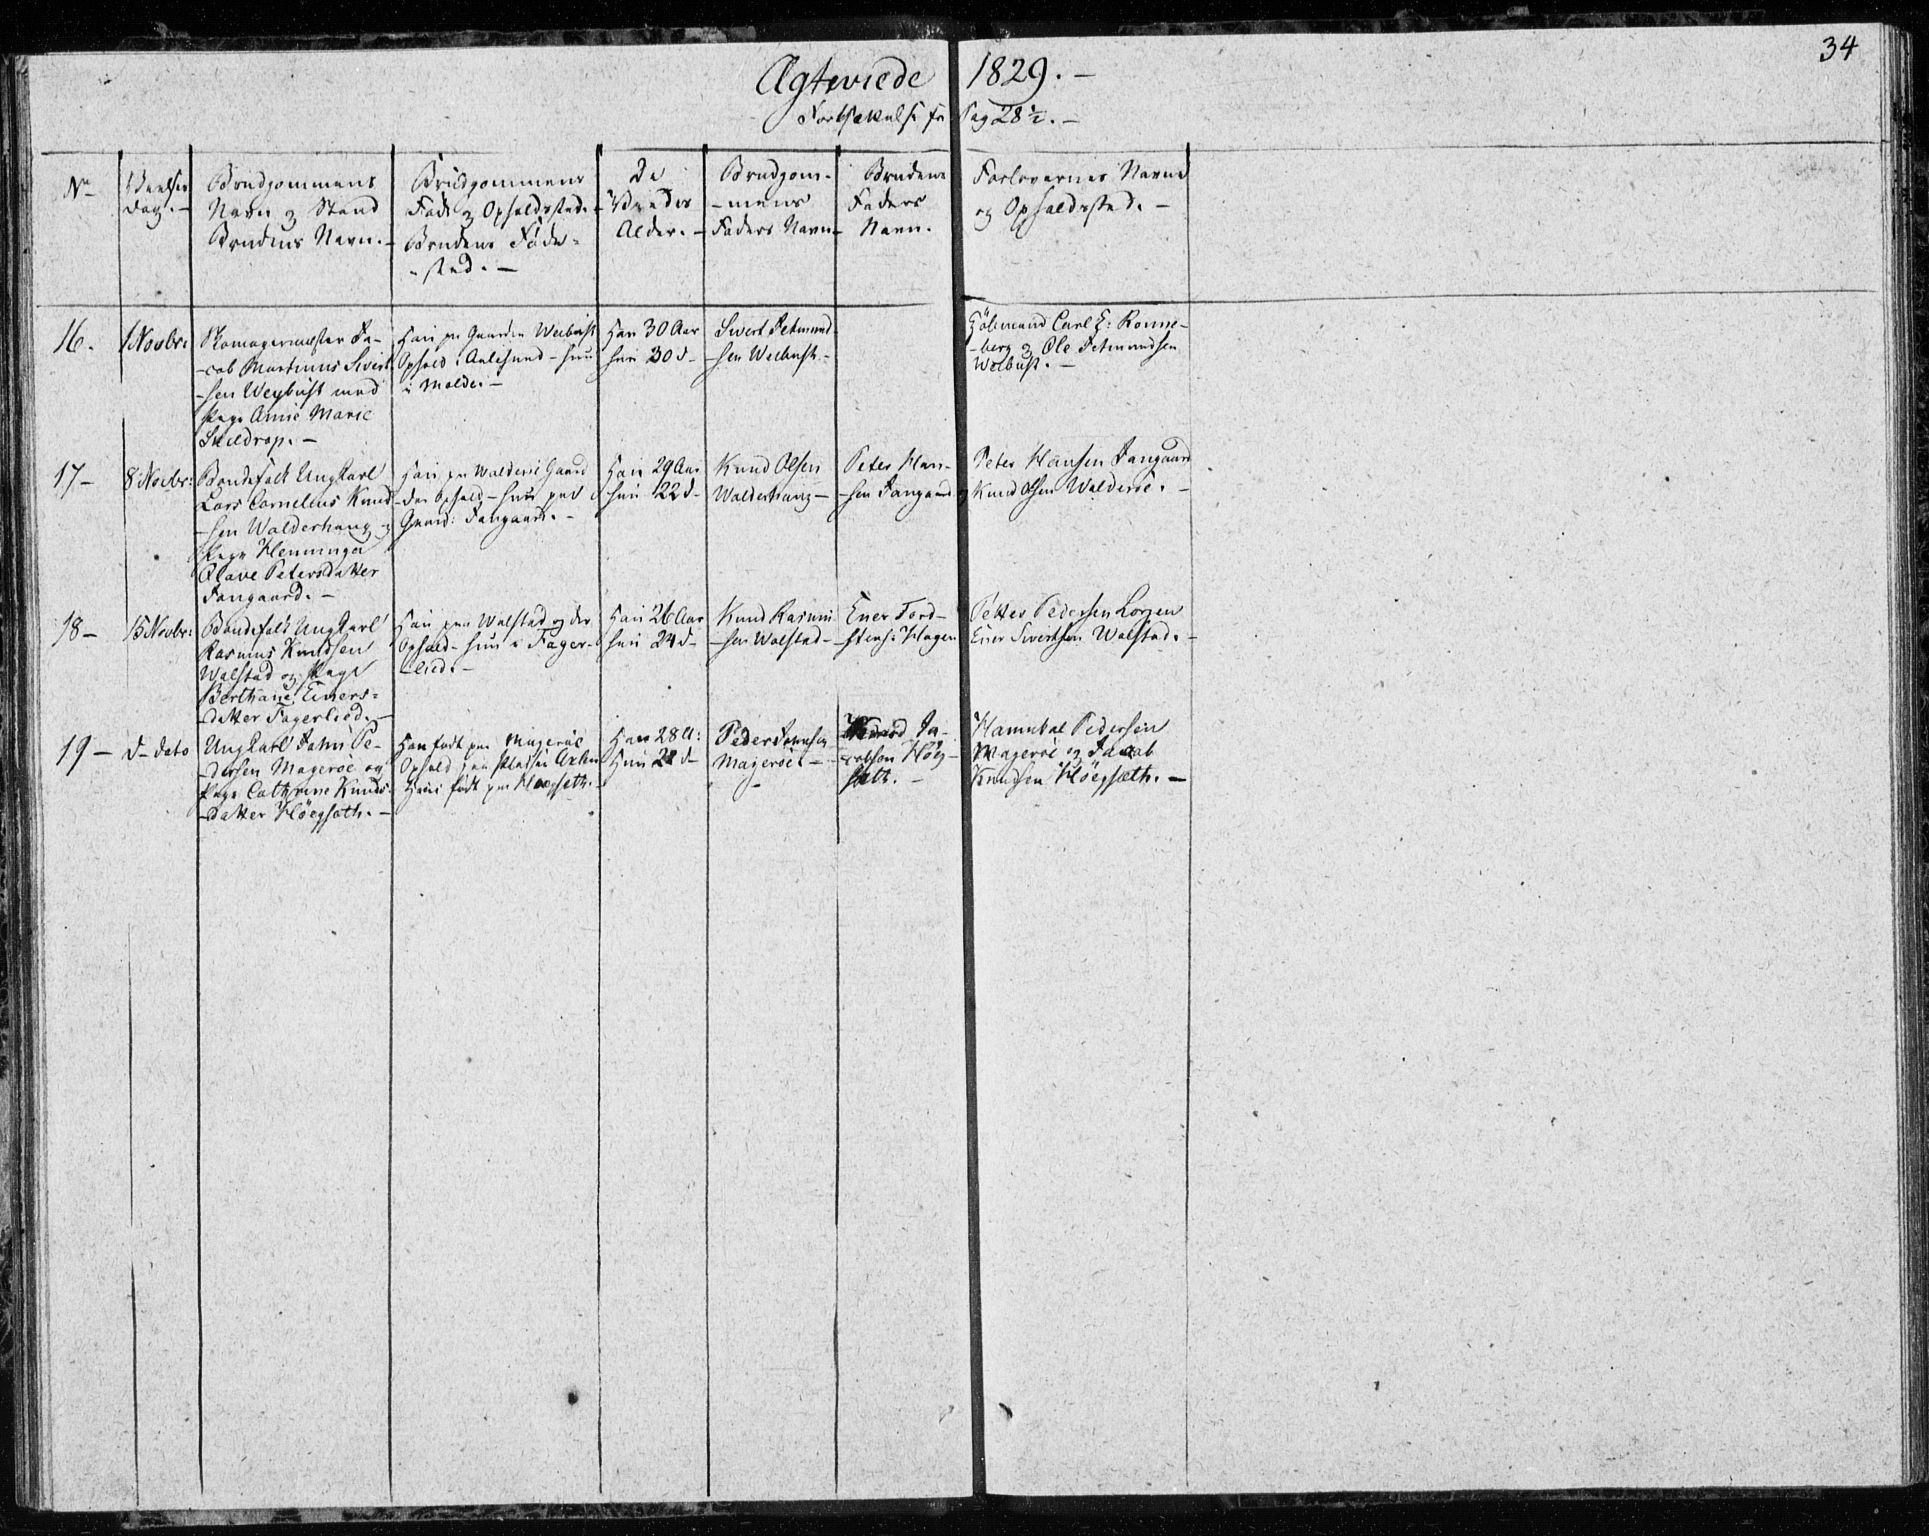 34
Ægteviede 1829. —
Fortsættelse fra Pag 28½. —
No
Vielses
Dag. —
Brudgommens
Navn og Stand
Brudens Navn. —
Brudgommens
Føde og Opholdssted. —
Brudens Føde-
-sted. —
De
Viedes
Alder. —
Brudgom-
-mens
Faders Navn —
Brudens
Faders
Navn.
Forlovernes Navne
og Opholdssted. —
16.
1 Novbr:
Skomagermester Ja-
-cob Martinus Sivert
-sen Weybust med
Pige Anne Marie
Skeldrop. —
Han paa Gaarden Weebust
Ophold i Aalesund — hun
i Molde. —
Han 30 Aar
hun 30 d—
Sivert Petmund
-sen Weebust. —
Kjöbmand Carl E: Ronne-
-berg og Ole Petmundsen
Webust. —
17 —
8 Novbr:
Bondefolk Ungkarl
Lars Cornelius Knud
-sen Walderhaug og
Pige Henninga
Olave Petersdatter
Fangaard. —
Han paa Walderöe Gaard
der Ophold — hun paa
Gaard: Fangaard. —
Han 29 Aar
hun 22 d—
Knud Olsen
Walderhaug —
Peter Han-
-sen Fangaard
Peter Hansen Fangaard
og Knud Olsen Walderöe. —
18 —
15 Novbr:
Bondefolk Ungkarl
Rasmus Knudsen
Walstad og Pige
Berthane Einers-
-datter Fagerlied. —
Han paa Walstad og der
Ophold — hun i Fager-
-lied. —
Han 26 Aar
hun 24 d—
Knud Rasmu
-sen Walstad —
Ener Tord-
-stens: Hagen
Petter Pedersen Lorgen
Einer Sivertsen Walstad. —
19 —
d— dato
Ungkarl John Pe-
-dersen Mageröe og
Pige Cathrine Knuds
-datter Höegsæth. —
Han født paa Mageröe
Ophold paa Pladsen Axlen
Hun født paa Hoegsæth. —
Han 28 A:
Hun 22 d—
Peder Johnsen
Mageröe. —
Knud Ja-
-cobsen Höeg-
sæth. —
Hannibal Pedersen
Mageröe og Jacob
Knudsen Höegsæth. —